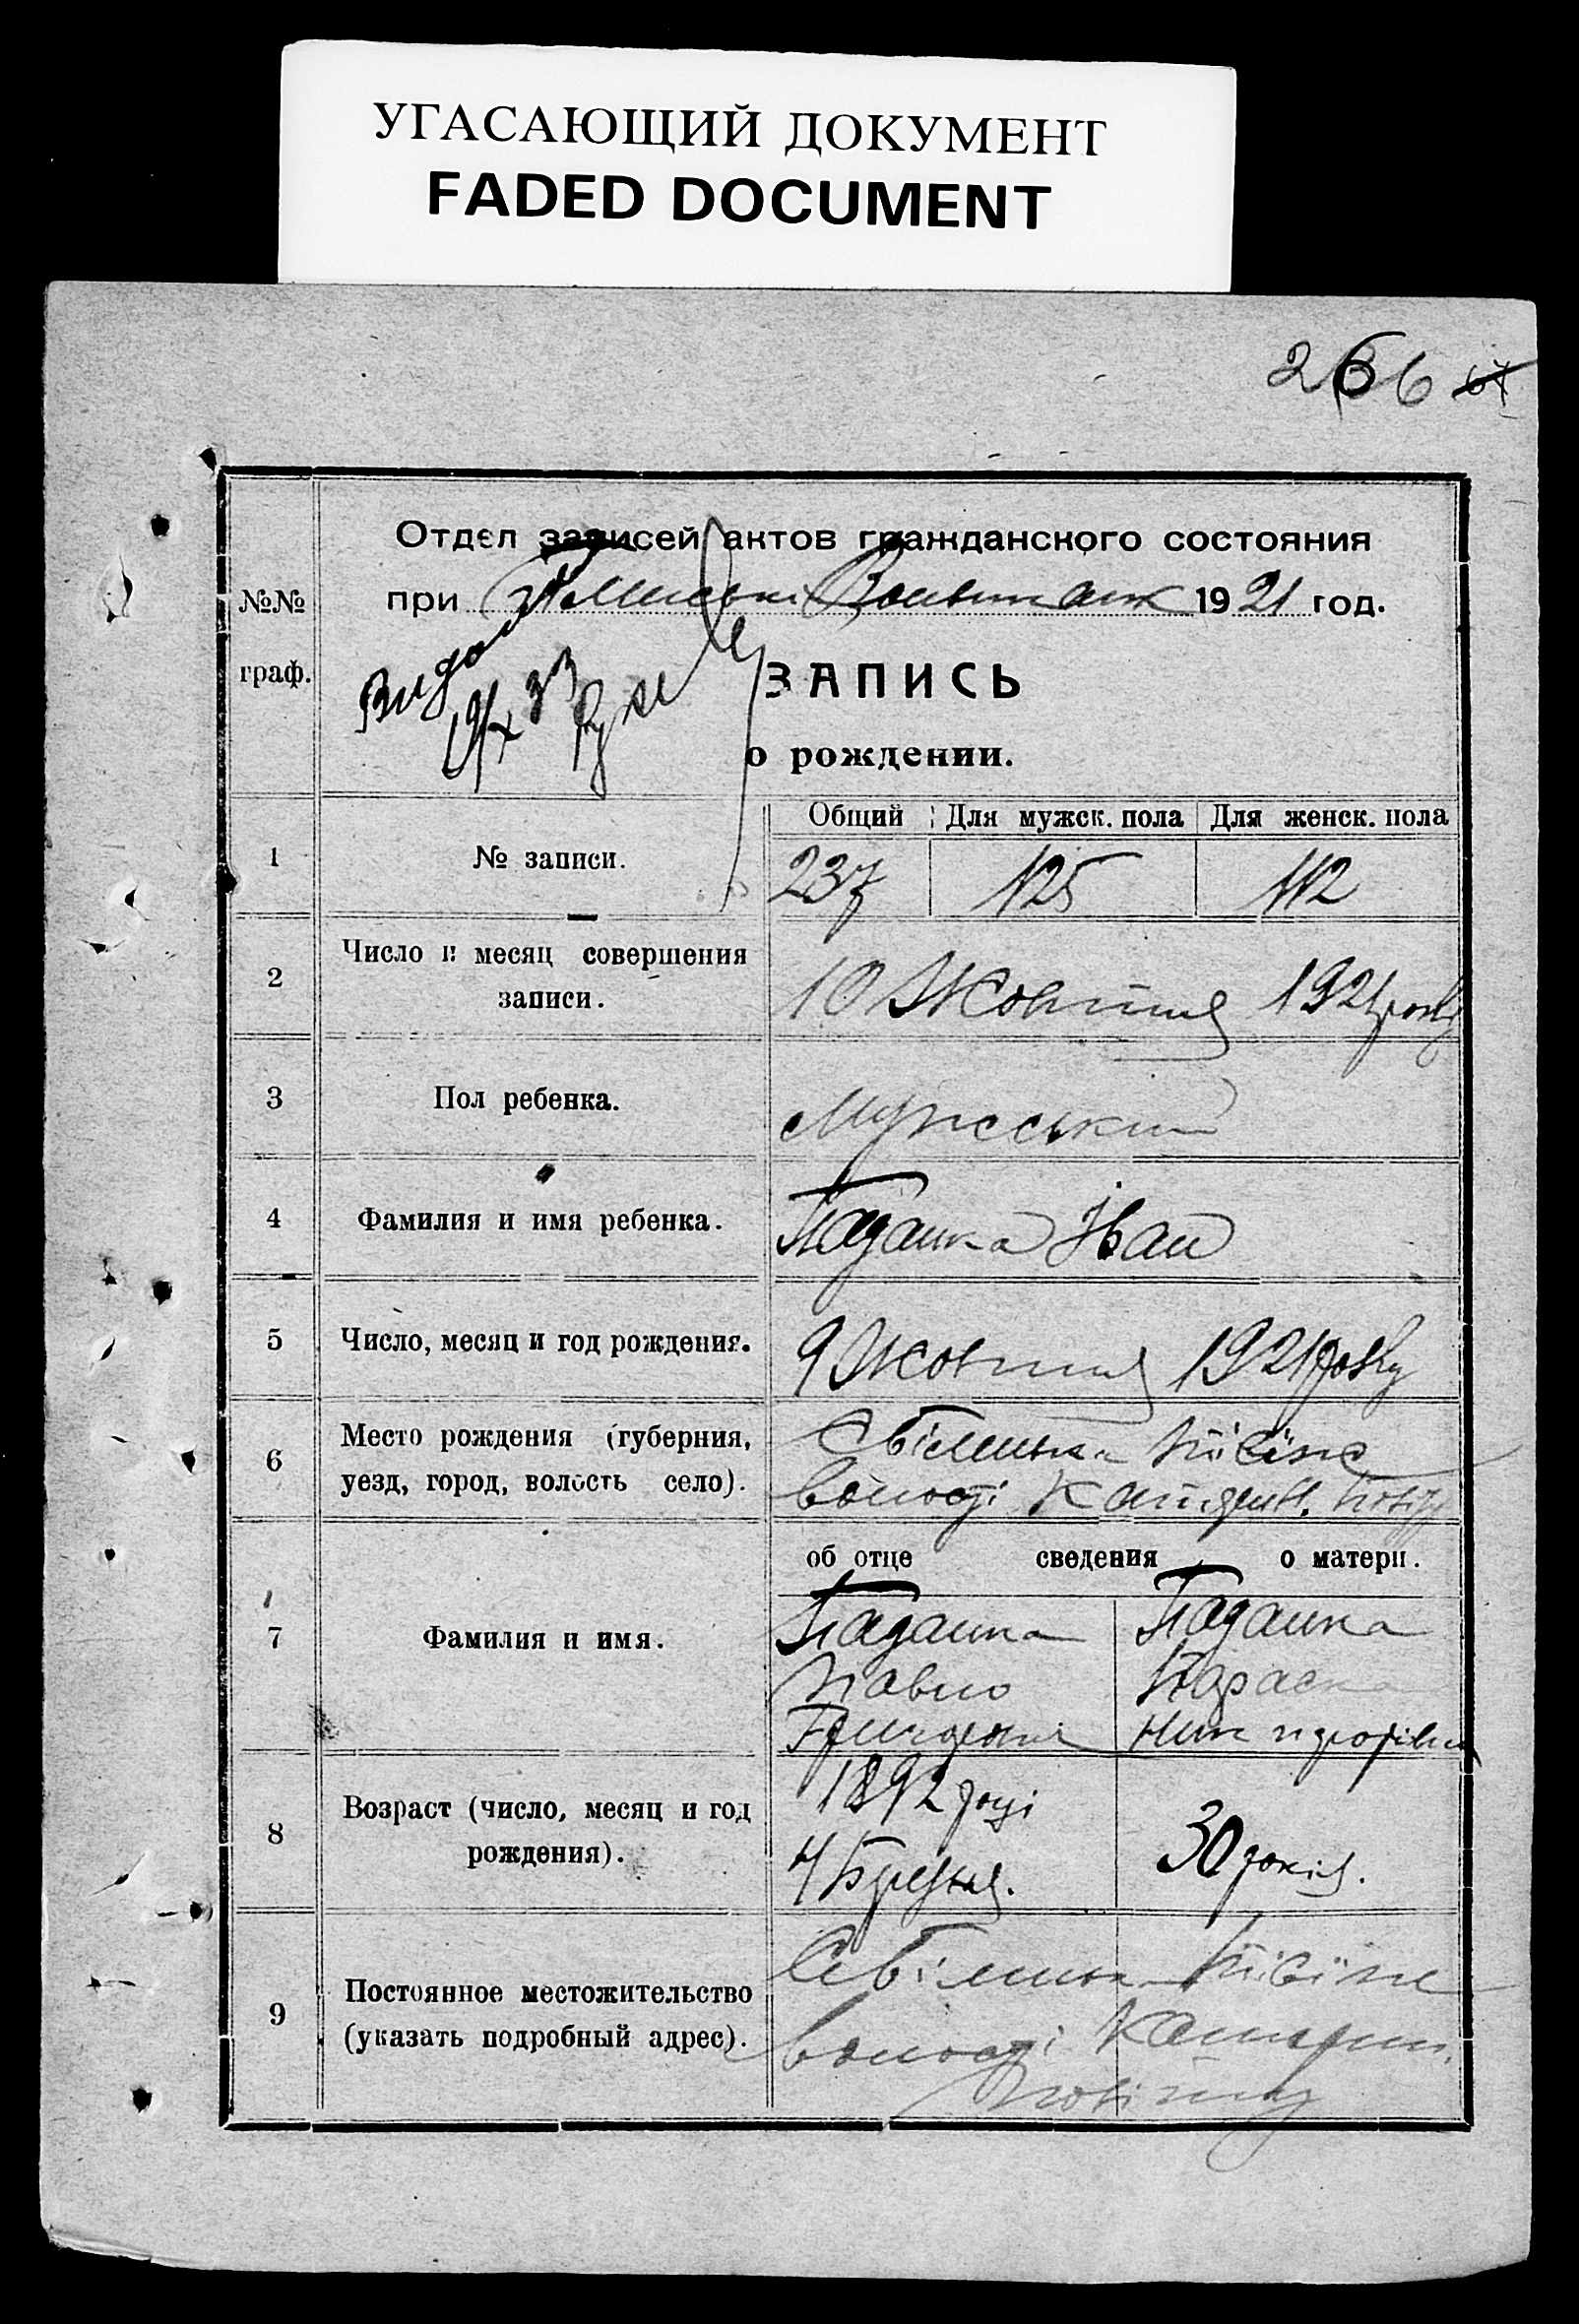 УГАСАЮЩИЙ ДОКУМЕНТ
FADED DOCUMENT
266 67
№№ граф.
Отдел записей актов гражданского состояния
при 1921 год.
ЗАПИСЬ
о рождении.
Общий Для мужск. пола Для женск. пола
1 № записи. 237 125 112
2 Число и месяц совершения
записи. 10 Жовтня 1921 року
3 Пол ребенка. Мужеський
4 Фамилия и имя ребенка. Падалка Іван
5 Число, месяц и год рождения. 9 Жовтня 1921 року
6 Место рождения (губерния,
уезд, город, волость село).
волості
об отце сведения о матери.
7 Фамилия и имя.
Падалка Падалка
Павло Параска
8 Возраст (число, месяц и год
рождения).
1892 році
4 Березня. 30 років.
9 Постоянное местожительство
(указать подробный адрес).
волості
повіту